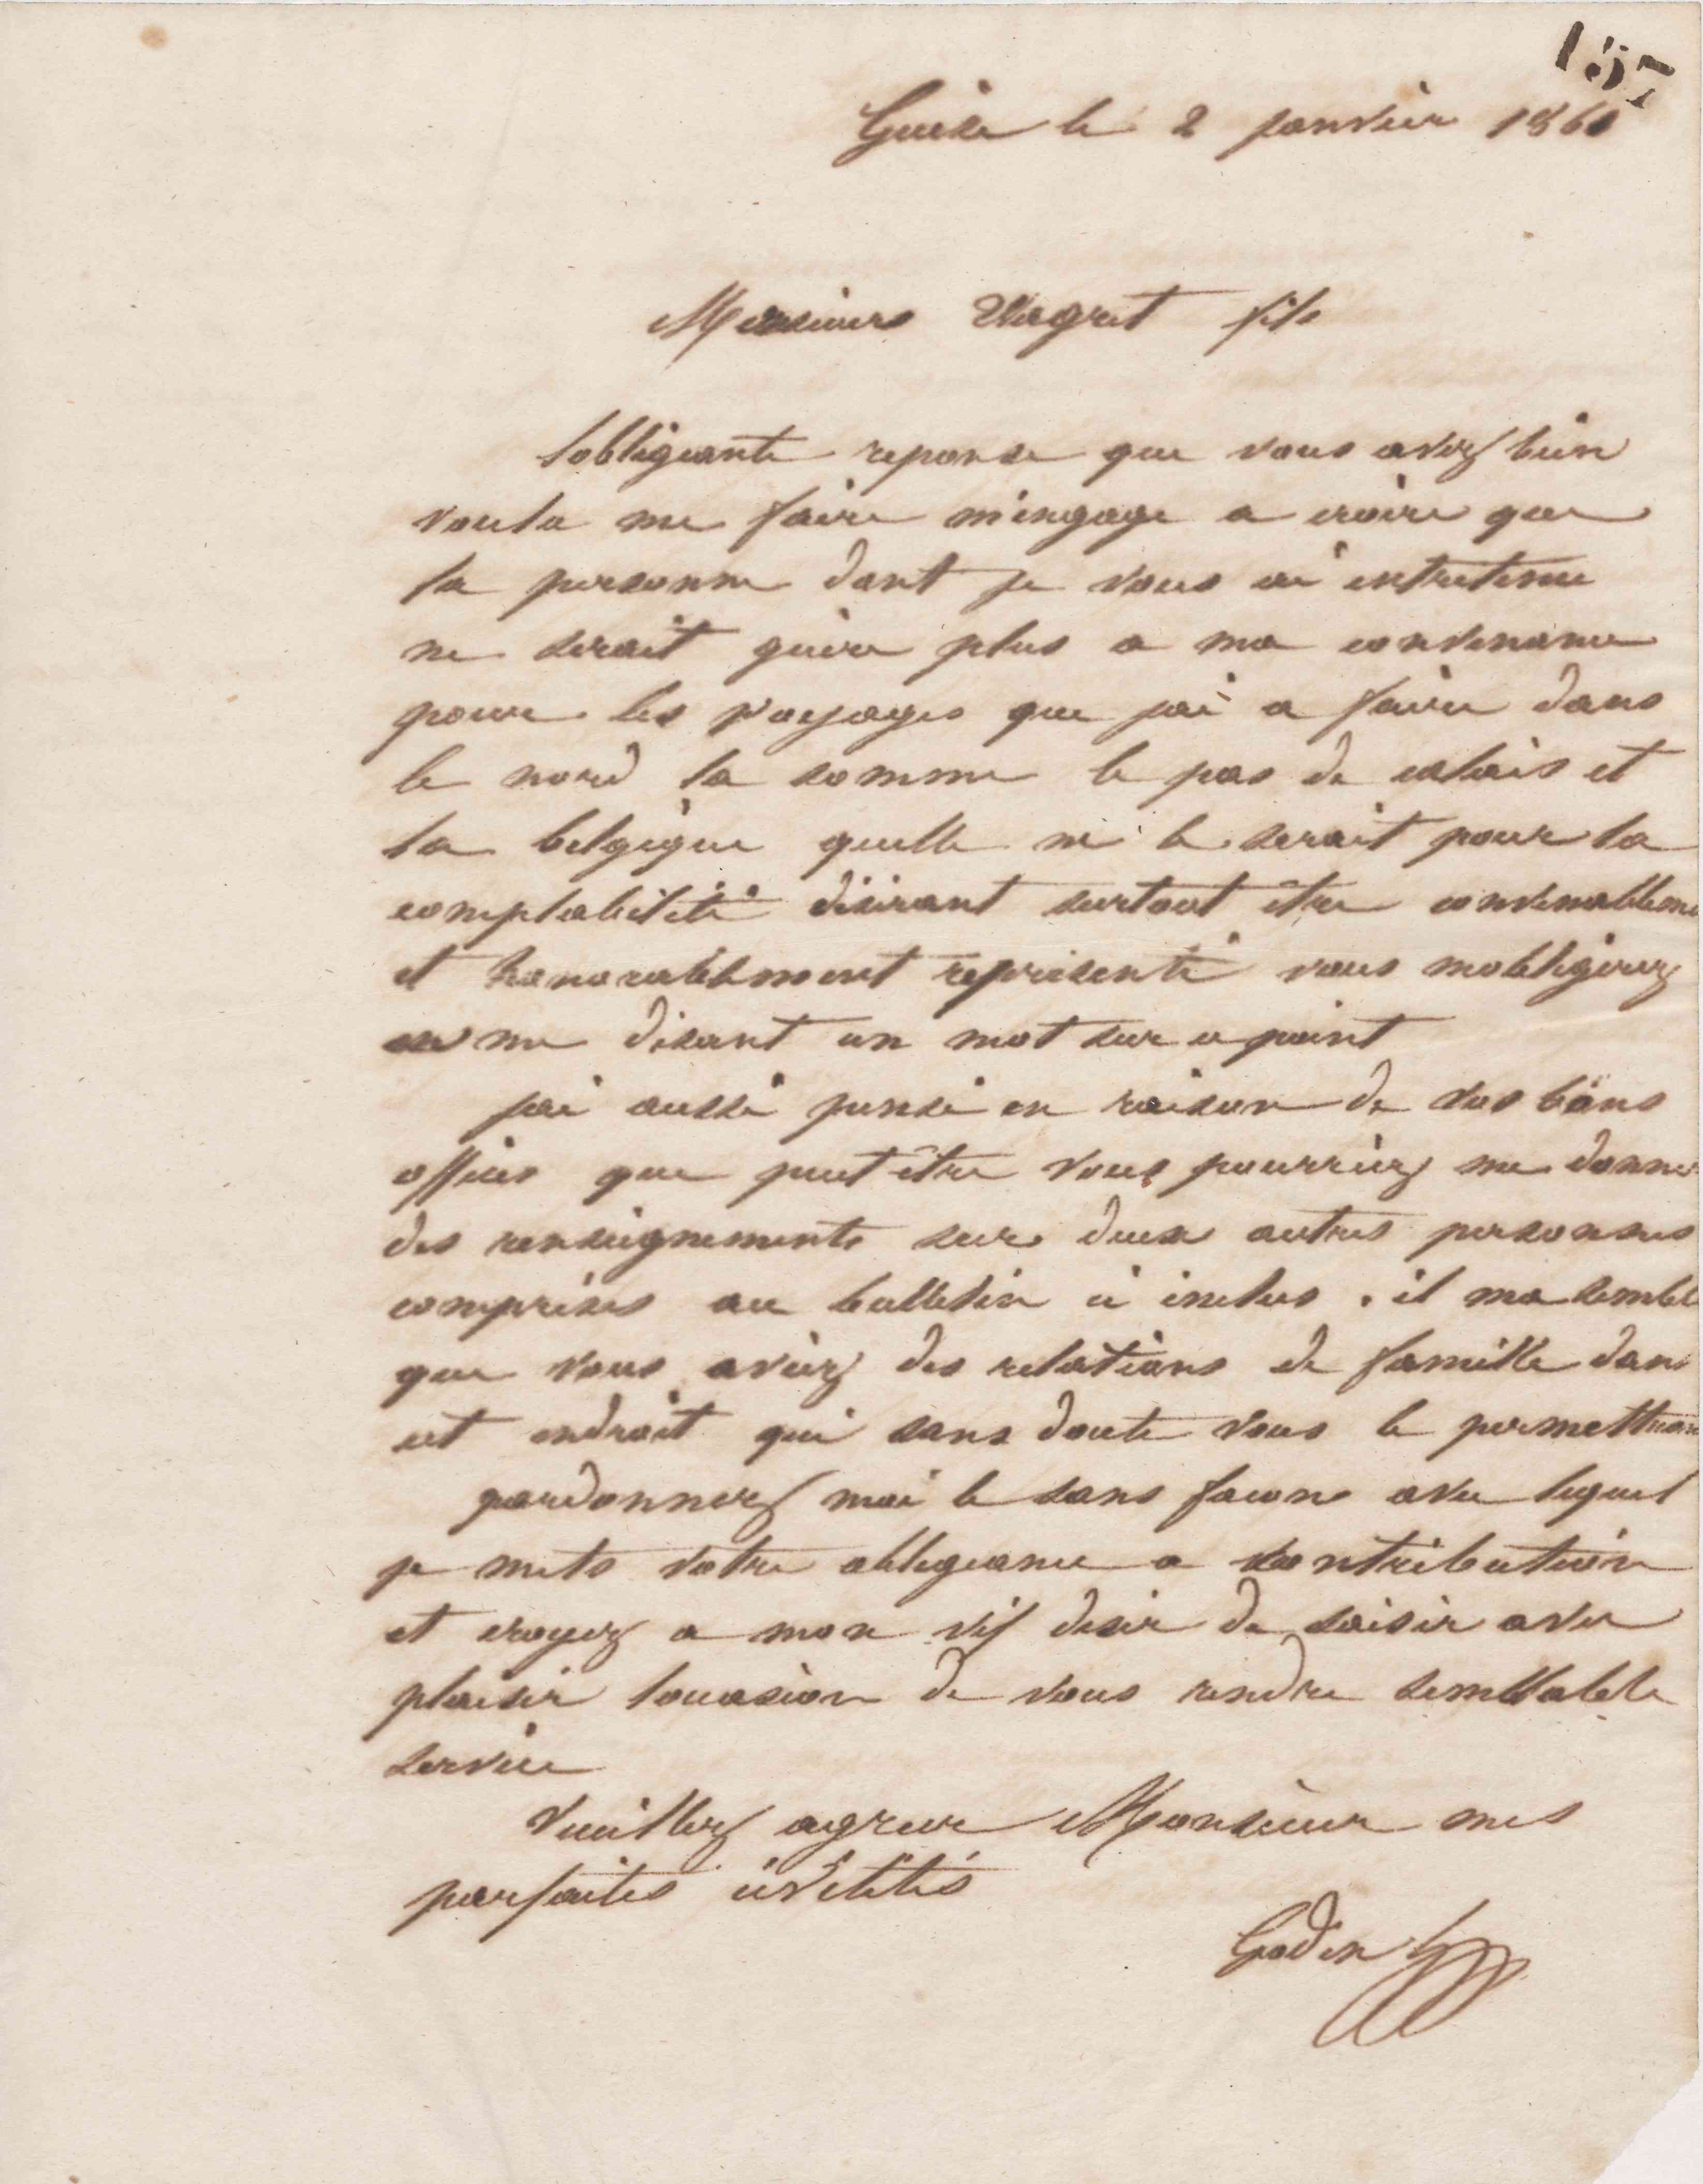 157
Guise le 2 janvier 1860
Messieurs Vagret fils
lobligeante reponse que vous avez bien
voulu me faire m'engage a croire que
la personne dont je vous ai entretenu
ne serait guère plus a ma convenance
pour les voyages que jai a faire dans
le nord la somme le pas de calais et
la belgique quelle ne le serait pour la
comptabilité désirant surtout être convenableme
et honorablement représenté vous mobligerez
en me disant un mot sur ce point
jai aussi pensé en raison de vos bons
offices que peut être vous pourriez me donner
des renseignements sur deux autres personnes
comprises au bulletin ci inclus . il ma semblé
que vous aviez des relations de famille dans
cet endroit qui sans doute vous le permettraient
pardonnez moi le sans facons avec lequel
je mets votre obligeance a contribution
et croyez a mon vif desir de saisir avec
plaisir loccasion de vous rendre semblable
service
Veuillez agreer Monsieur mes
parfaites civilités
Godin